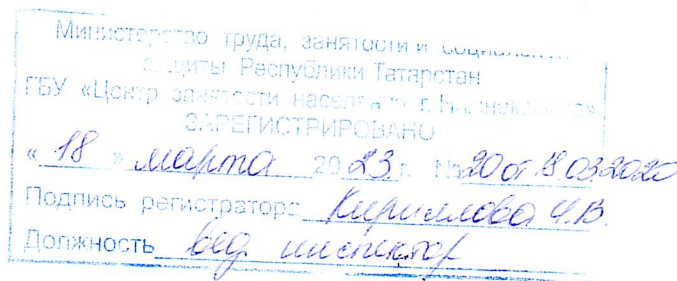 Министерство труда, занятости и социальной
защиты Республики Татарстан
ГБУ «Центр занятости населения г. Нижнекамска»
ЗАРЕГИСТРИРОВАНО
« 18 » марта 2023 г. № 20 от 03.2020
Подпись регистратора Кириллова
Должность вед. инспектор